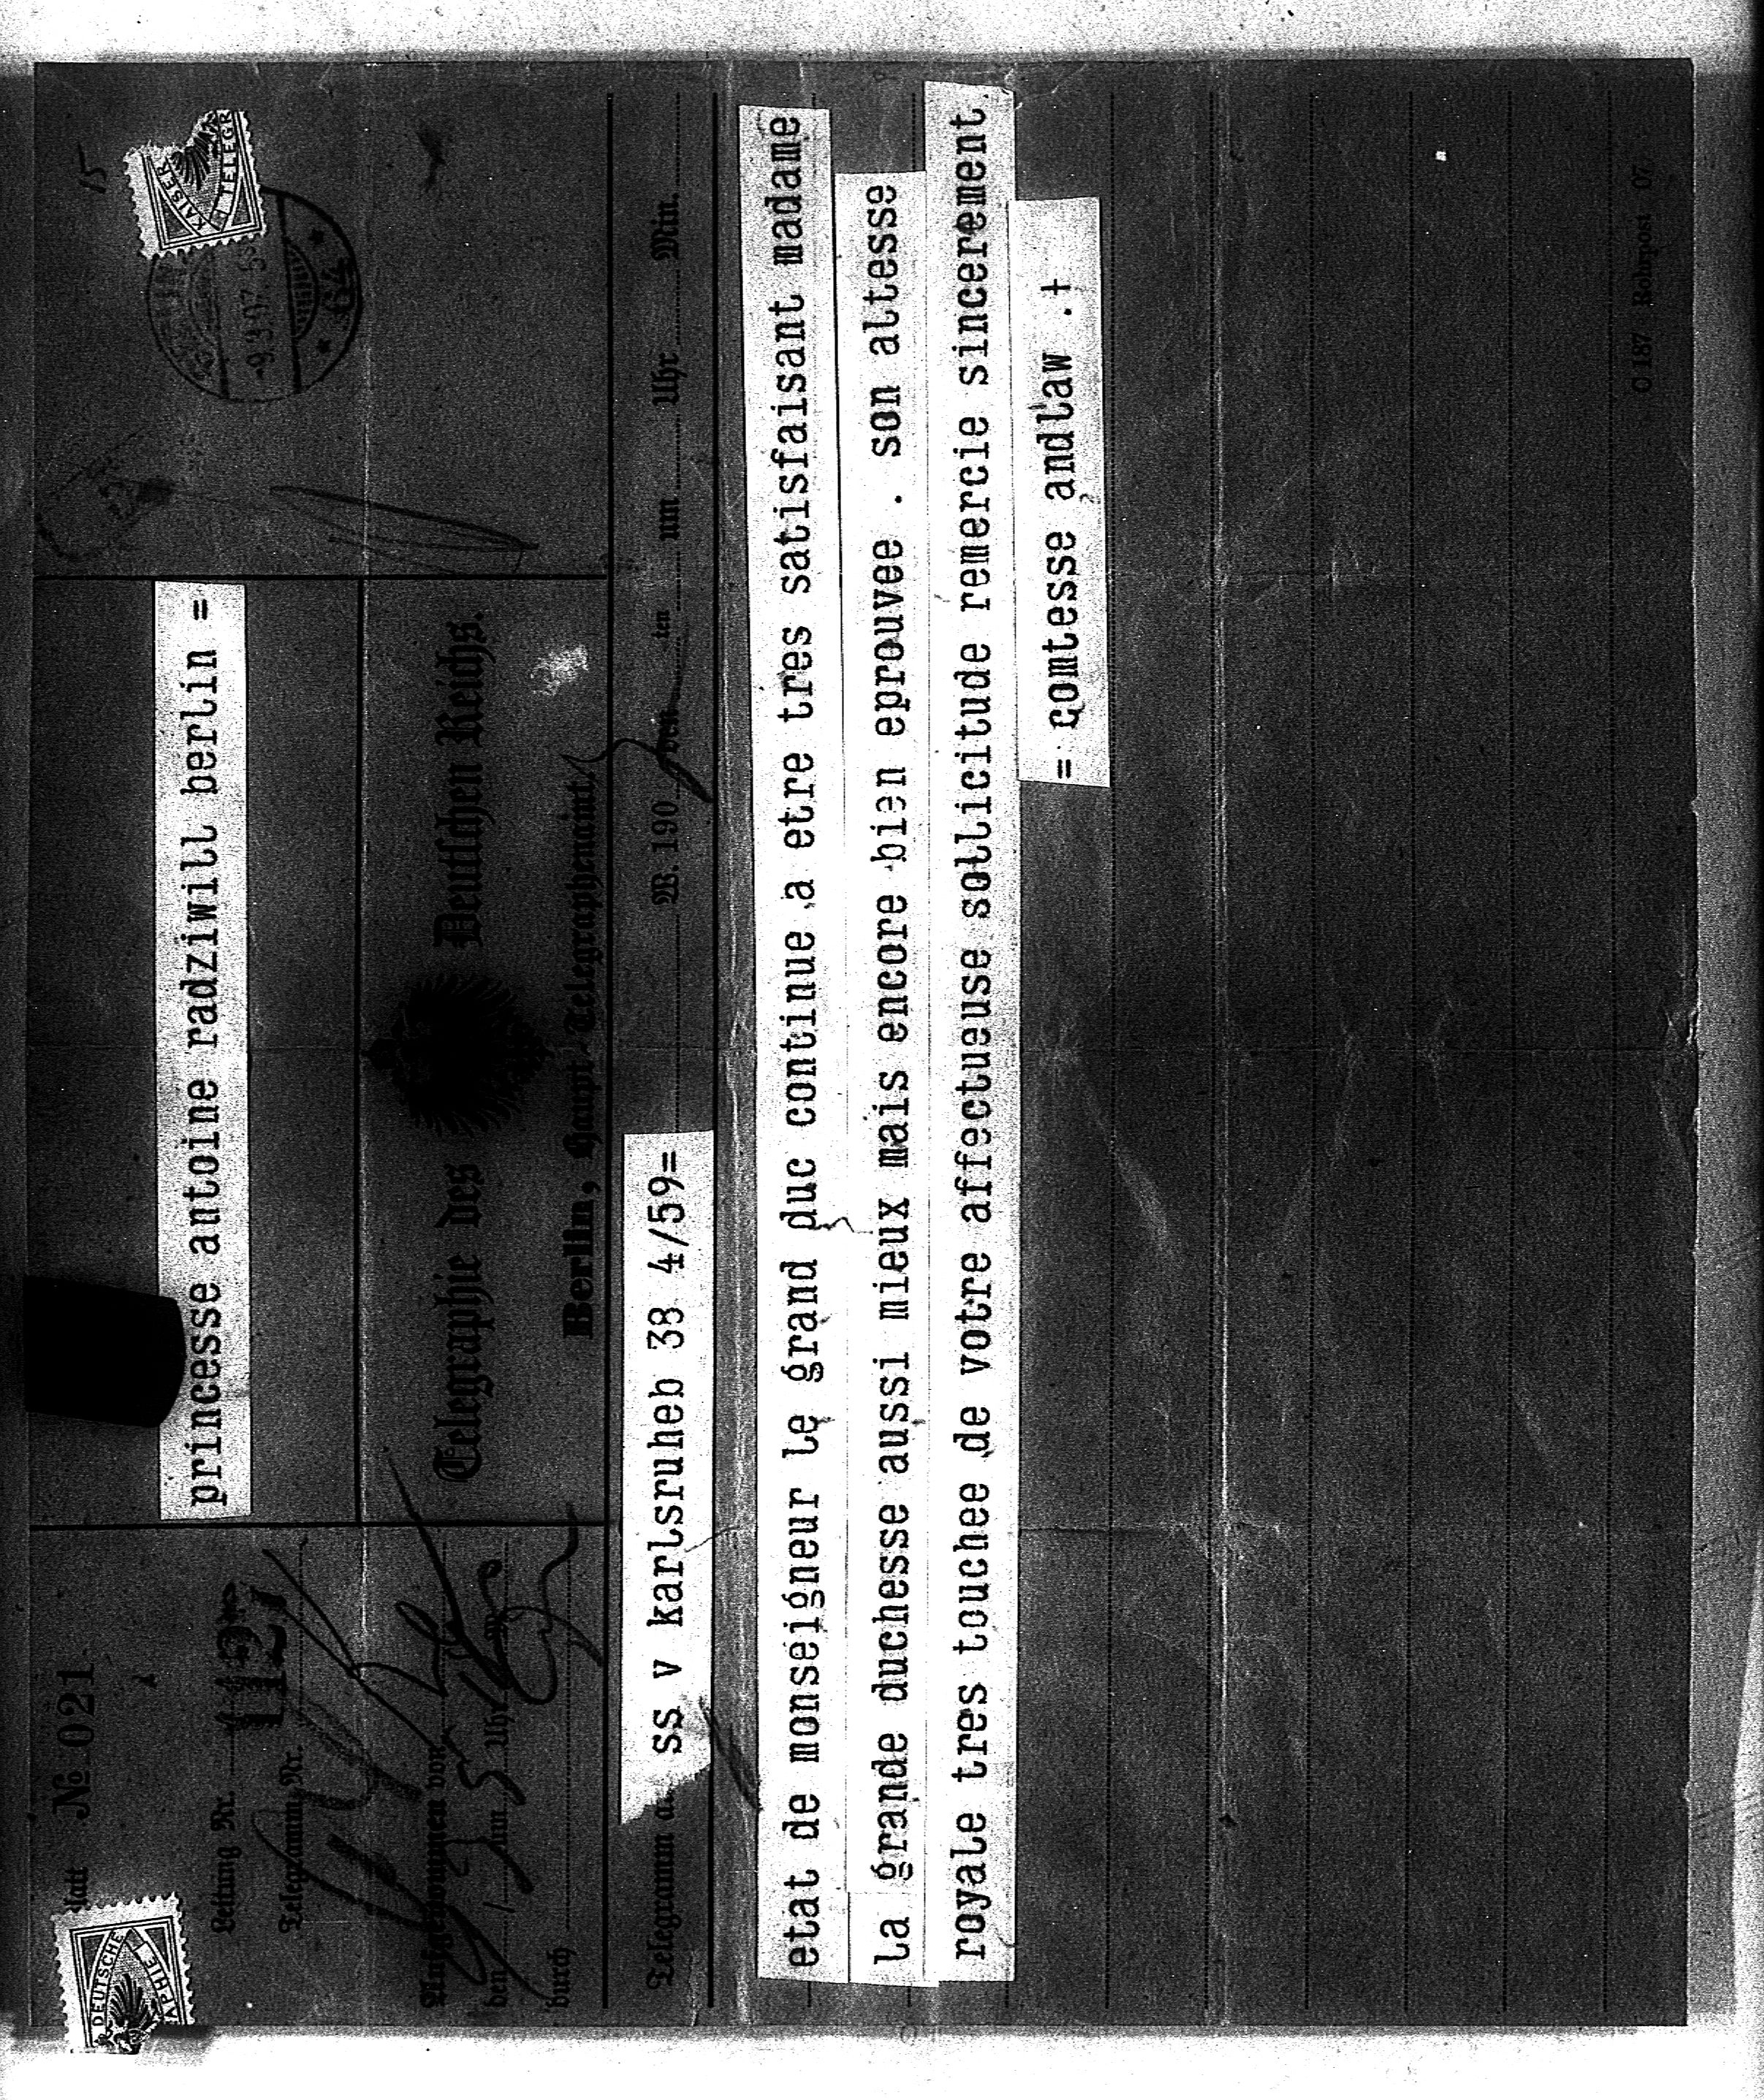 Blatt № 021
Leitung Nr. 112
Telegramm Nr.
Aufgenommen von
den / um Uhr M.
durch
princesse antoine radziwill berlin =
Telegraphie des Deutschen Reichs.
Berlin, Haupt-Telegraphenamt
15
-9.3.07.5
* 64 *
KAISER
TELEGR
DEUTSCHE
APHIE
Telegramm a. ss v karlsruheb 38 4/59= W. 190 den ten um Uhr Min.
etat de monseigneur le grand duc continue a etre tres satisfaisant madame
la grande duchesse aussi mieux mais encore bien eprouvee . son altesse
royale tres touchee de votre affectueuse sollicitude remercie sincerement
= comtesse andlaw .+
C 187 Rohrpost 07.